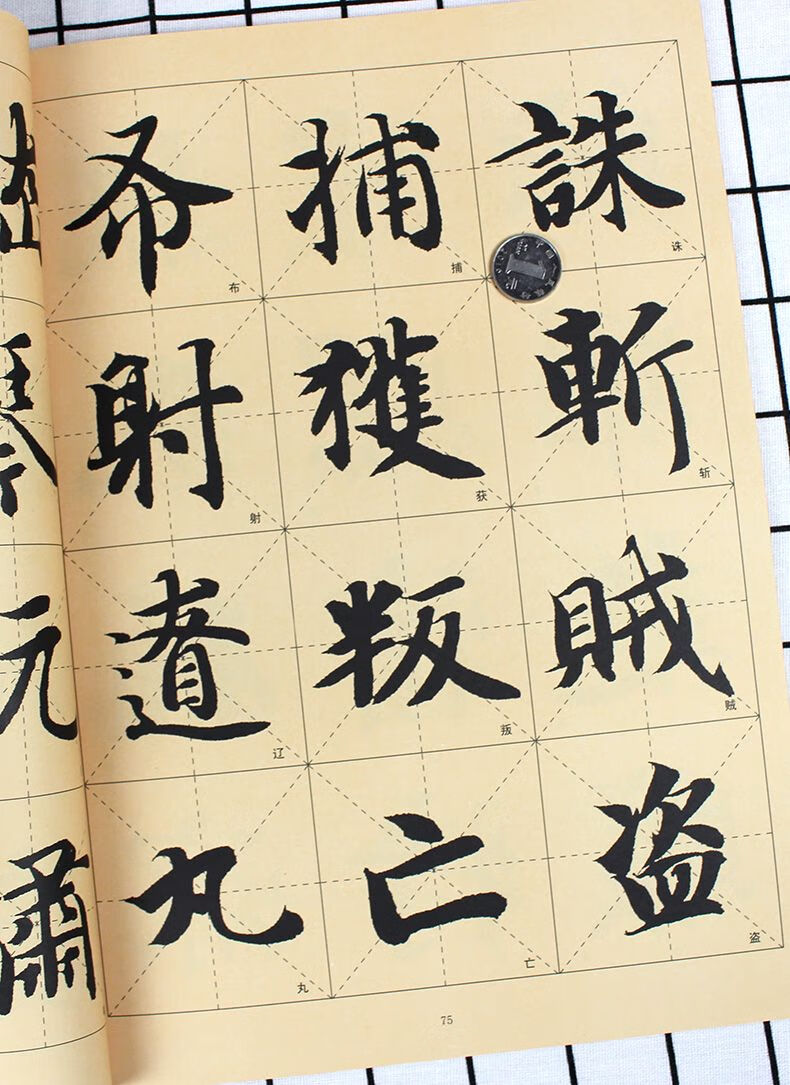 誅斬賊盗
诛
斩
贼
盗
捕獲叛亡
捕
获
叛
亡
布射遼丸
布
射
辽
丸
75
1